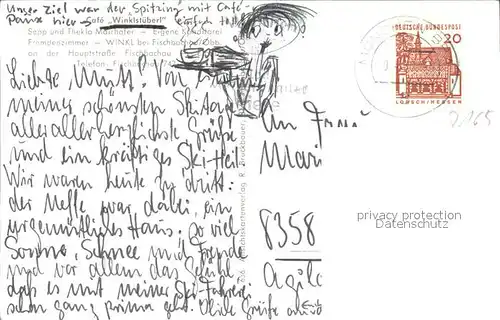 Unser Ziel war der "Spitzing" mit Café-
Pause hier → Café „Winklstüberl" einfach toll
Sepp und Thekla Mairhofer — Eigene Konditorei
Fremdenzimmer — WINKL bei Fischbachau/Obb.
an der Hauptstraße Fischbachau
Telefon: Fischbachau
Liebste Mutti, Von
meiner schönsten Skitour
allerallerherzlichste Grüße
und ein kräftiges Ski-Heil
Wir waren heute zu dritt:
der Neffe war dabei, ein
urgemütliches Haus. So viel
Sonne, Schnee und Freude
und vor allem das Gefühl
daß es mit meiner Ski-Fahrerei
schon ganz prima geht. Viele Grüße
Ansichtskartenverlag R. Bruckbauer
DEUTSCHE BUNDESPOST
20
LORSCH/HESSEN
An Frau
Mari
8358
privacy protection
Datenschutz